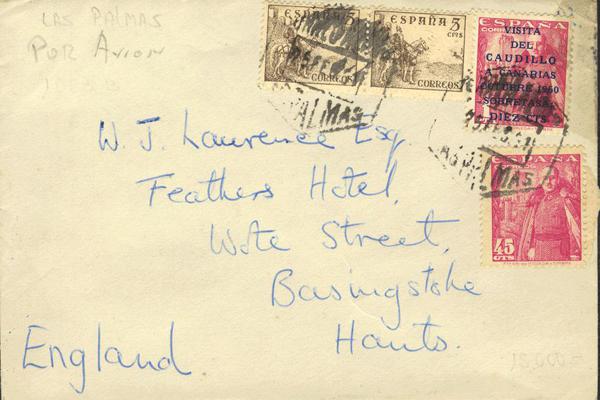 LAS PALMAS
POR AVION
ESPAÑA 5
CTS
CORREOS
ESPAÑA 5
CTS
CORREOS
ESPAÑA
VISITA
DEL
CAUDILLO
A CANARIAS
OCTUBRE 1950
SOBRETASA:
DIEZ CTS
PALMAS
LAS PALMAS
ESPAÑA
45
CTS
W. J. Lawrence Esq.
Feathers Hotel,
Wote Street,
Basingstoke
Hants.
England.
15,000=